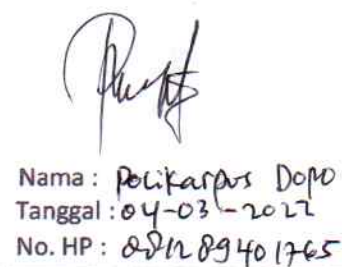 Nama : Polikarpus Dopo
Tanggal : 04-03-2022
No. HP : 081289401765